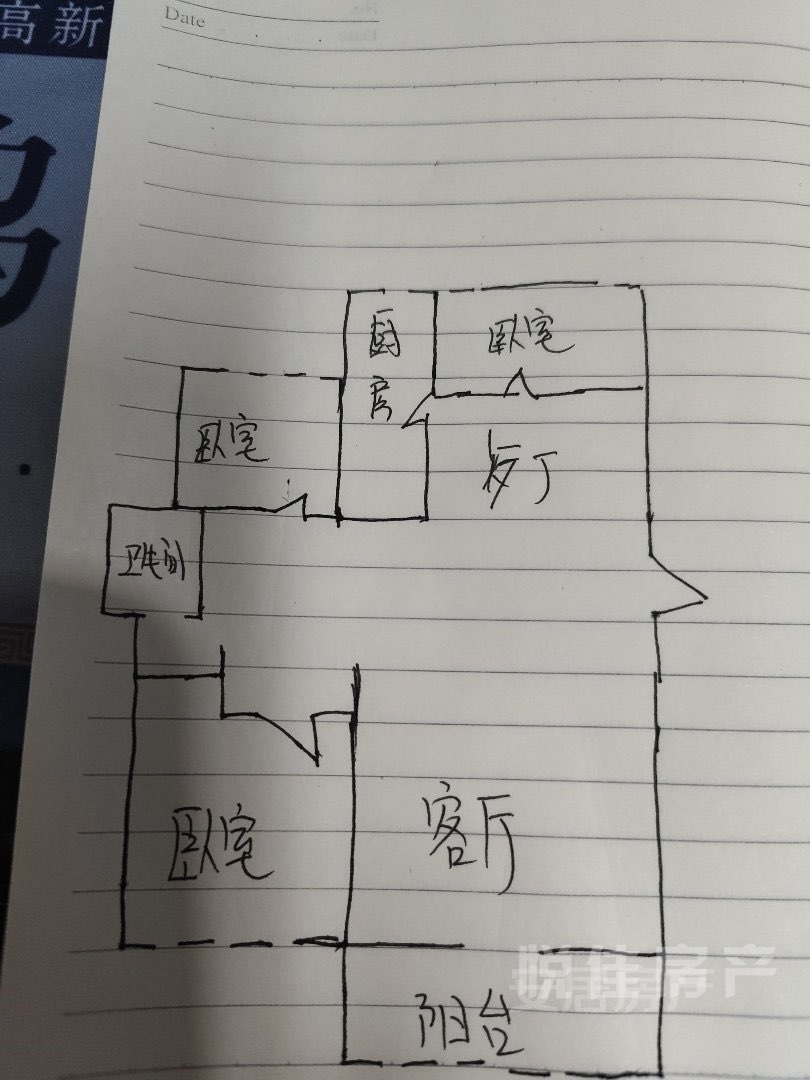 高新
Date
厨房
卧室
卧室
餐厅
卫生间
卧室
客厅
悦佳房产
阳台